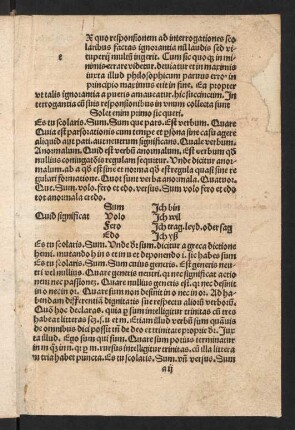 X quo responsionem ad interrogationes sco
e laribus factas ignorantia nō laudis sed vi
tuperij multū ingerit. Cum sic quo qꝫ in mi
nimis errare videtur. deuiatur et in maximis
iuxta illud philosophicum paruus error in
principio maximus erit in fine. Ea propter
vt talis ignorantia a pueris amoueatur. hic succincte. In
terrogantis cū suis responsionibus in vnum collecta sunt
Solet enim primo sic queri.
Es tu scolaris. Sum. Sum que pars. Est verbum. Quare
Quia est pars orationis cum tempore et psona sine casu agere
aliquid aut pati. aut neutrum significans. Quale verbum.
Anomalum. Quid est verbū anomalum. Est verbum qd
nullius coniugatōis regulam sequitur. Vnde dicitur anor-
malum. ab a qd est sine et norma qd est regula quasi sine re
gulari formatione. Quot sunt verba anomala. Quatuor.
Que. Sum. volo. fero et edo. versus. Sum volo fero et edo
tot anormala credo.
Sum Ich bin
Quid significat Volo Ich wil
Fero Ich trag. leyd. oder sag
Edo Ich yß
Es tu scolaris. Sum. Vnde dr sum. dicitur a greca dictione
hemi. mutando h in s et e in u et deponendo i. sic habes sum
Es tu scolaris. Sum. Sum cuius generis. Est generis neutri
vel nullius. Quare generis neutri. qꝫ nec significat actio
nem nec passionem. Quare nullius generis est. qꝫ nec definit
in o nec in or. Quare sum non definit in o nec in or. Ad ha-
bendam differentiā dignitatis sue respectu aliorū verborū.
Quō hoc declaras. quia p sum intelligitur trinitas cū tres
habeat litteras scz. s. u et m. Etiam illud verbū sum quāuis
de omnibus dici possit tn de deo et trinitate proprie dr. Jux
ta illud. Ego sum qui sum. Quare sum potius terminatur
in m qꝫ in n. qꝫ p m. rursus intelligitur trinitas. cū illa littera
m tria habet puncta. Es tu scolaris. Sum. vn̄ versus. Sum
aij